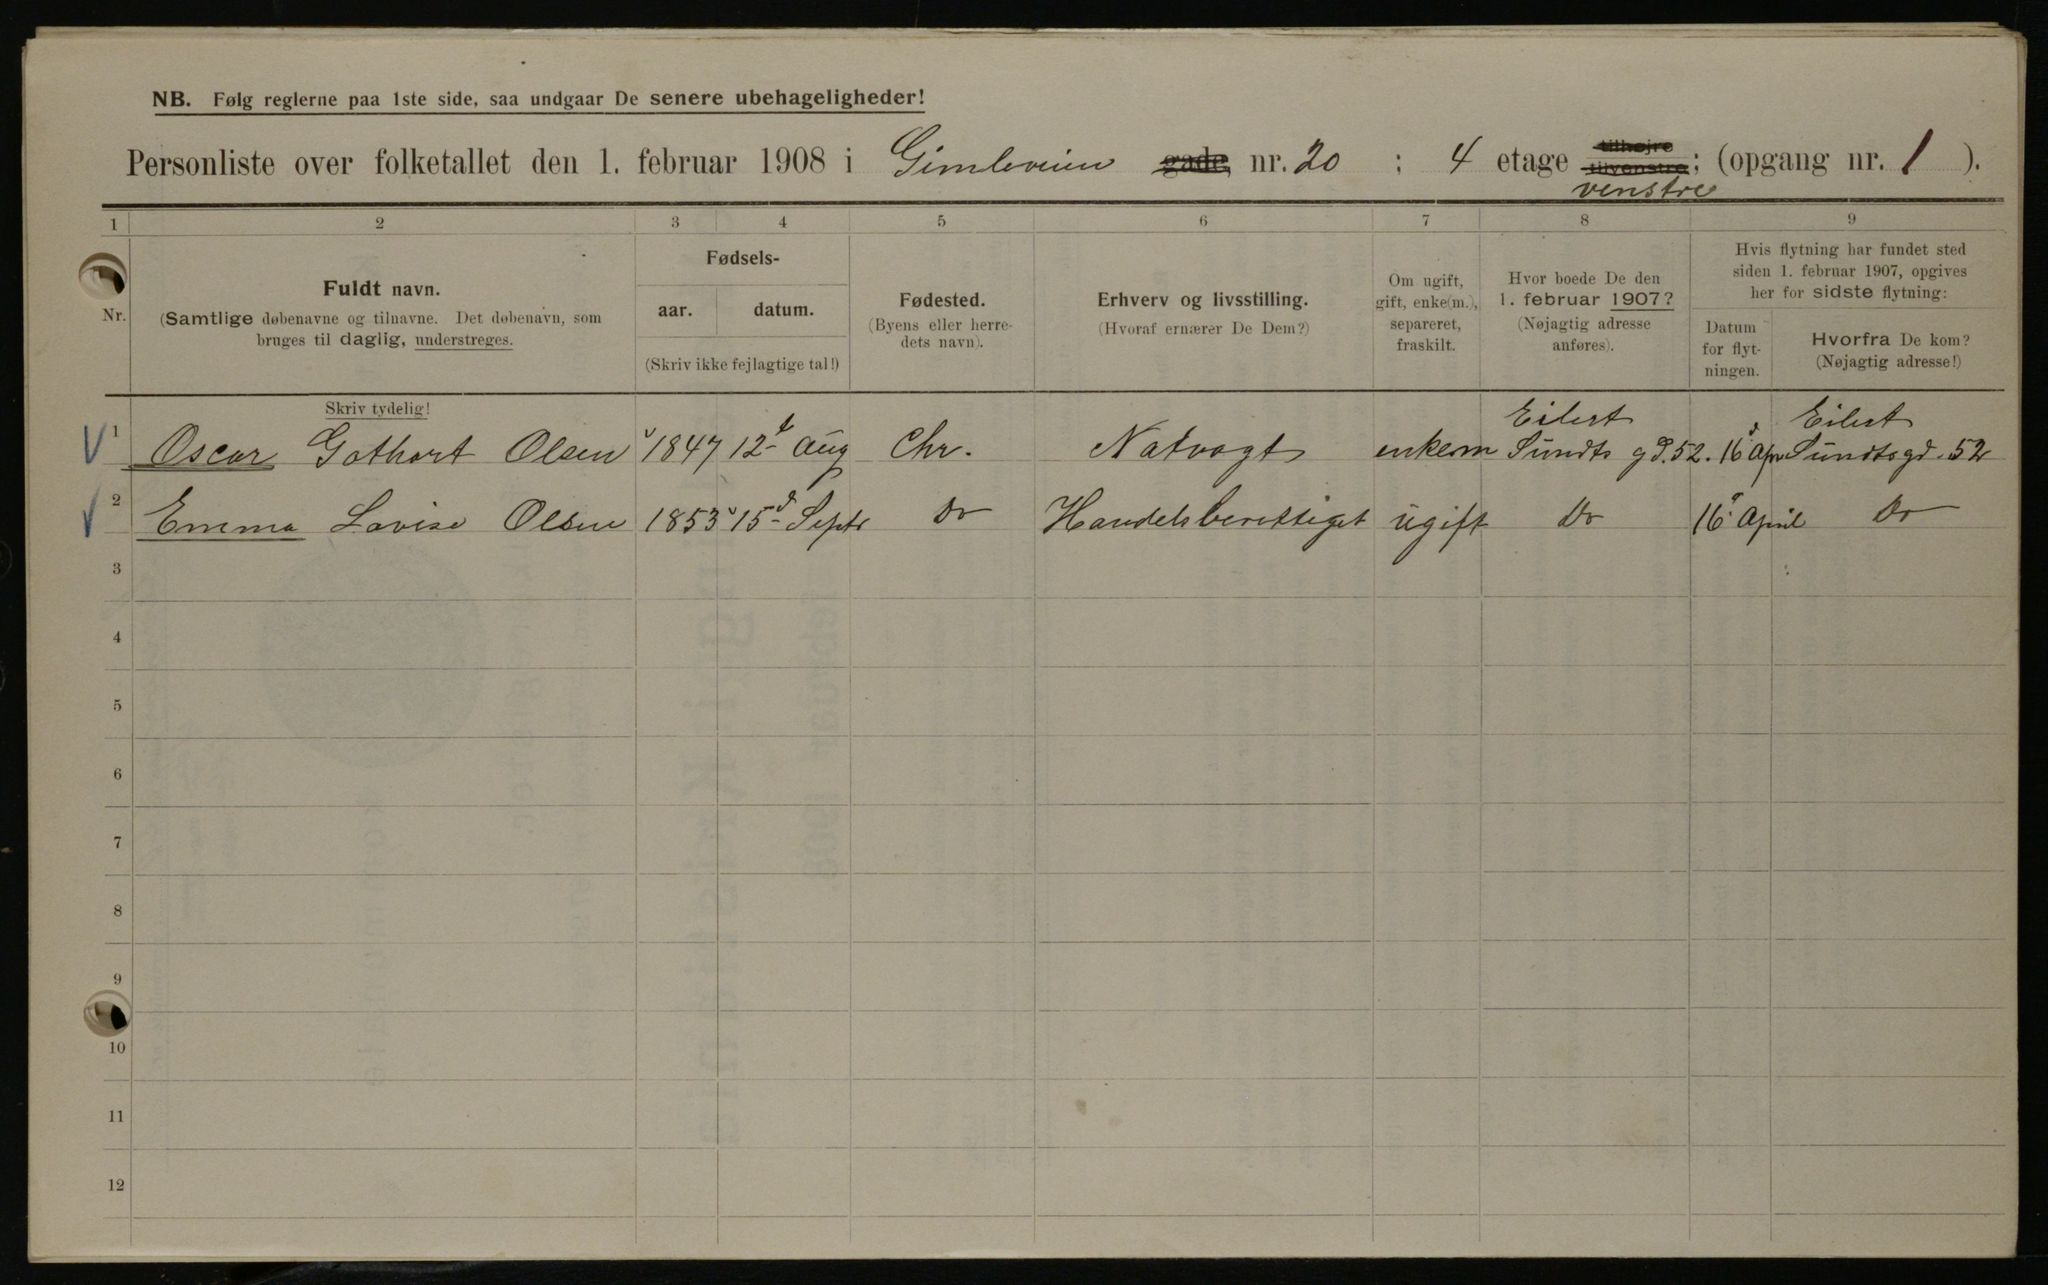 NB. Følg reglerne paa 1ste side, saa undgaar De senere ubehageligheder!
Personliste over folketallet den 1. februar 1908 i Gimleveien gade, nr. 20 ; 4 etage tilhøjre tilvenstre; venstre (opgang nr. 1 ).
1 2 3 4 5 6 7 8 9
Nr.
Fuldt navn.
(Samtlige døbenavne og tilnavne. Det døbenavn, som
bruges til daglig, understreges.
Skriv tydelig!
Fødsels-
aar. datum.
(Skriv ikke fejlagtige tal!)
Fødested.
(Byens eller herre-
dets navn).
Erhverv og livsstilling.
(Hvoraf ernærer De Dem?)
Om ugift,
gift, enke(m.),
separeret,
fraskilt.
Hvor boede De den
1. februar 1907?
(Nøjagtig adresse
anføres).
Hvis flytning har fundet sted
siden 1. februar 1907, opgives
her for sidste flytning:
Datum
for flyt-
ningen.
Hvorfra De kom?
(Nøjagtig adresse!)
1 Oscar Gothart Olsen 1847 12te Aug Chr. Natvogt enkem Eilert Sundts gd. 52. 16d Apr Eilert Sundtsgd. 52
2 Emma Lovise Olsen 1853 15de Septr Do Handelsberettiget ugift Do 16d April Do
3
4
5
6
7
8
9
10
11
12